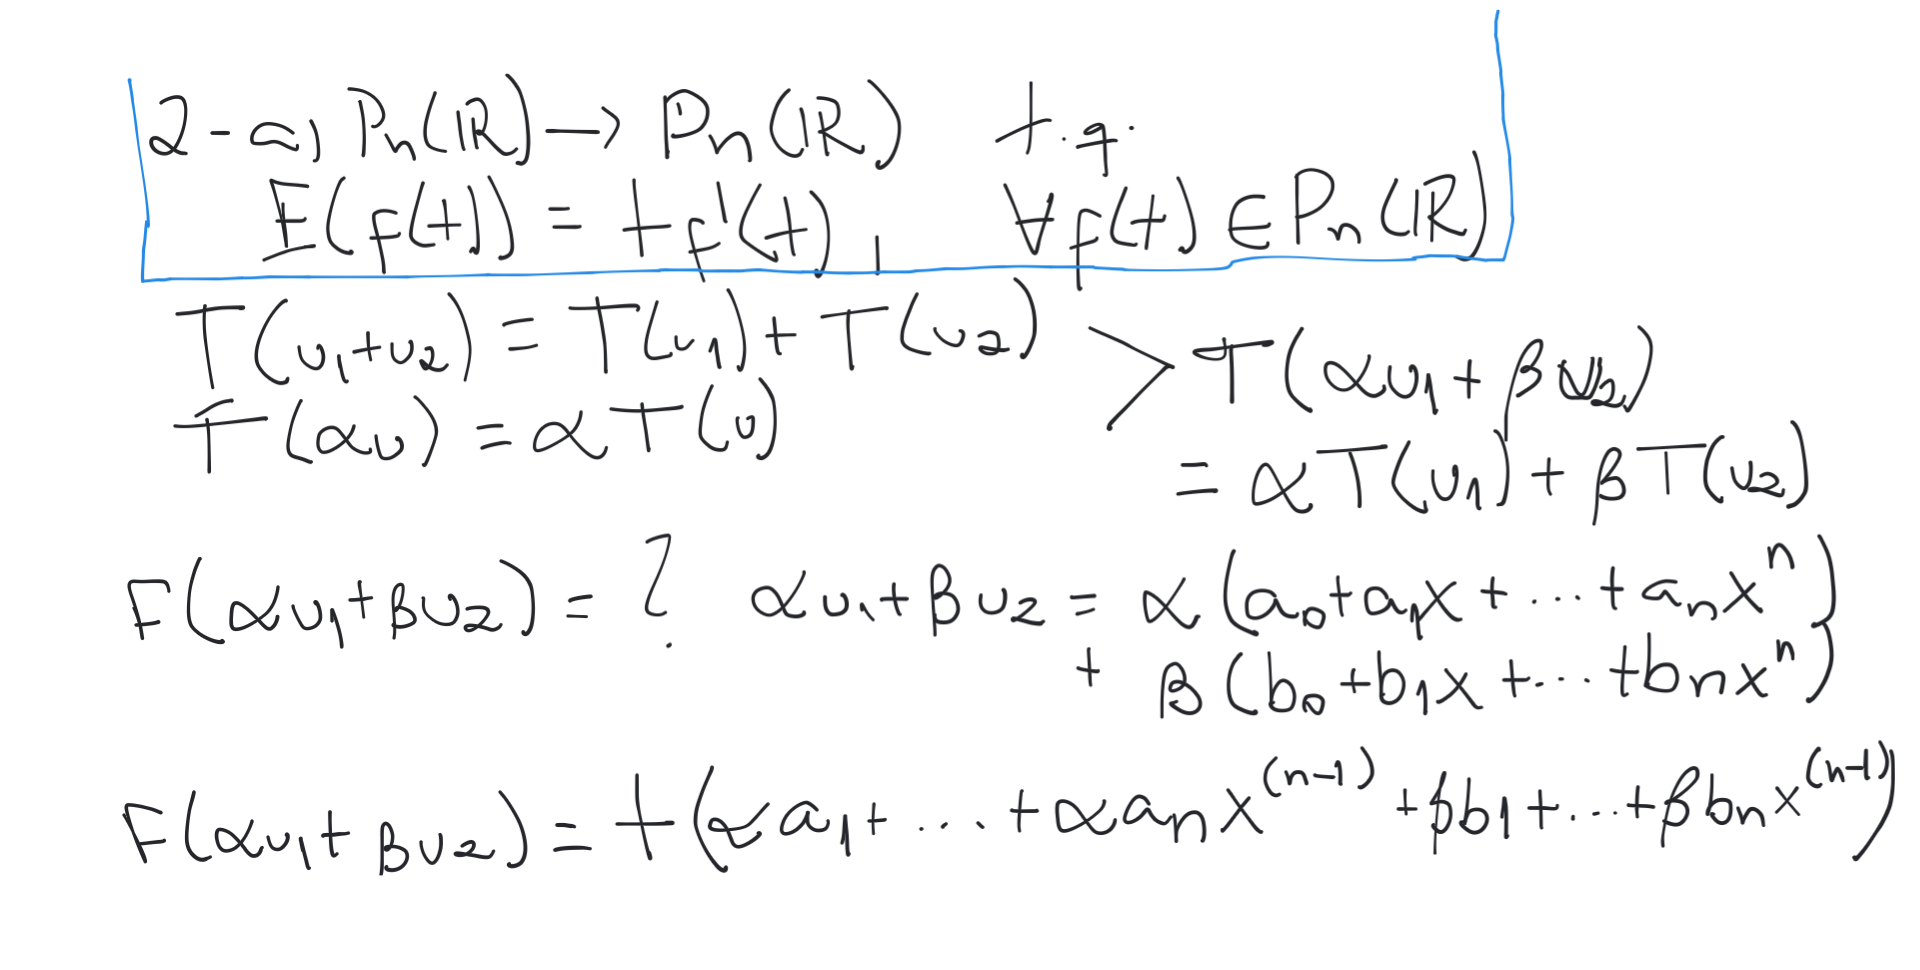 2-a) Pn(ℝ) → Pn(ℝ) t.q.
F(f(t)) = t f'(t), ∀ f(t) ∈ Pn(ℝ)
T(v₁+v₂) = T(v₁) + T(v₂)
T(αv) = αT(v)
> T(αv₁ + βv₂)
= αT(v₁) + βT(v₂)
F(αv₁+βv₂) = ? αv₁+βv₂ = α(a₀+a₁x+...+aₙxⁿ)
+ β(b₀+b₁x+...+bₙxⁿ)
F(αv₁+βv₂) = t(αa₁+...+αaₙx⁽ⁿ⁻¹⁾+βb1+...+βbₙx⁽ⁿ⁻¹⁾)